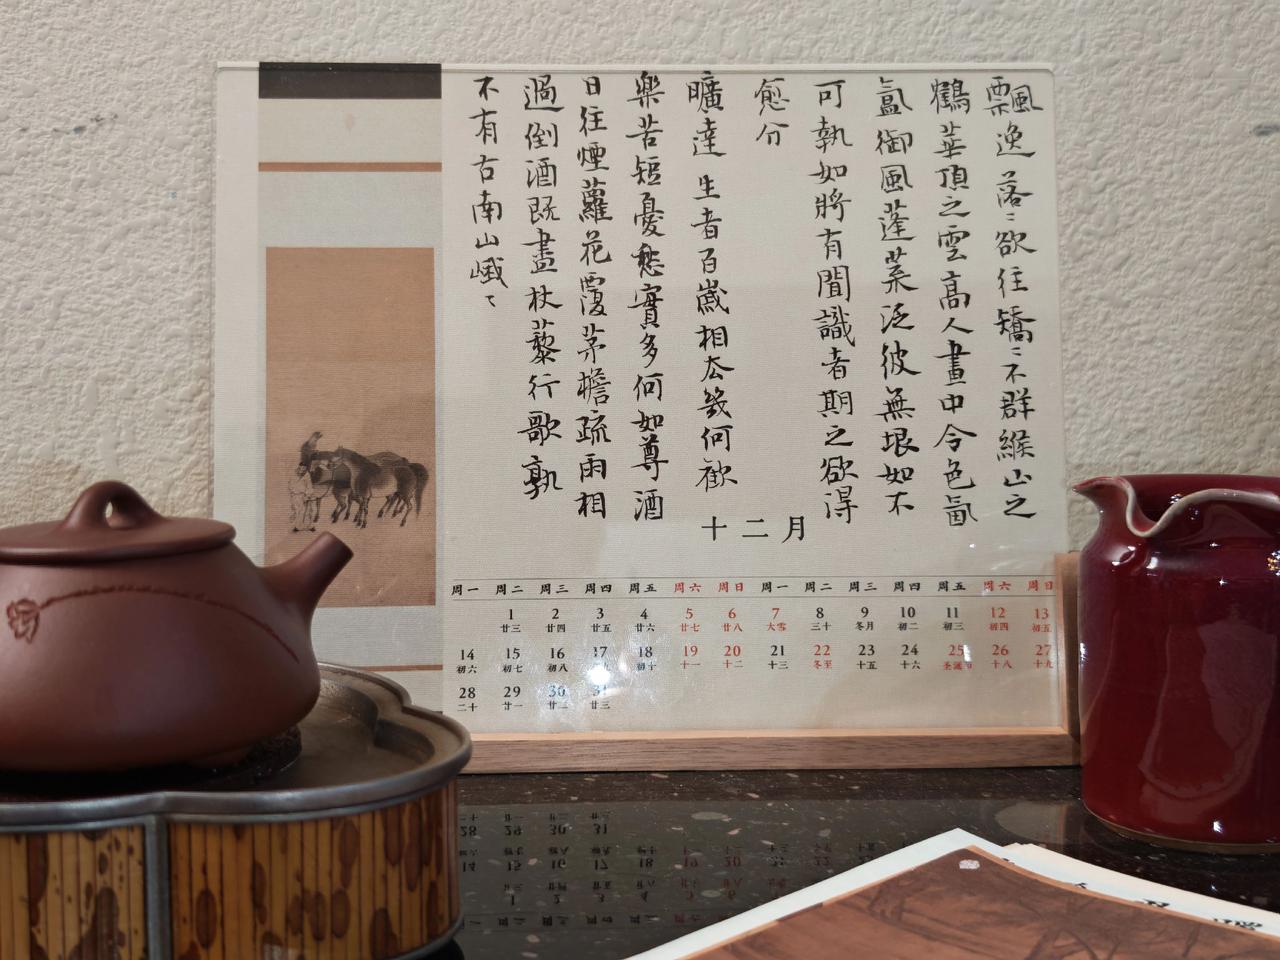 飄逸 落〻欲往矯〻不群緱山之
鶴華頂之雲高人畫中令色氤
氳御風蓬葉泛彼無垠如不
可執如將有聞識者期之欲得
愈分
曠達 生者百歲相去幾何歡
樂苦短憂愁實多何如尊酒
日往煙蘿花覆茅檐疏雨相
過倒酒既盡杖藜行歌孰
不有古南山峨〻
十二月
周一 周二 周三 周四 周五 周六 周日 周一 周二 周三 周四 周五 周六 周日
1 2 3 4 5 6 7 8 9 10 11 12 13
廿三 廿四 廿五 廿六 廿七 廿八 大雪 三十 冬月 初二 初三 初四 初五
14 15 16 17 18 19 20 21 22 23 24 25 26 27
初六 初七 初八 初十 十一 十二 十三 冬至 十五 十六 圣诞节 十八 十九
28 29 30 31
二十 廿一 廿二 廿三